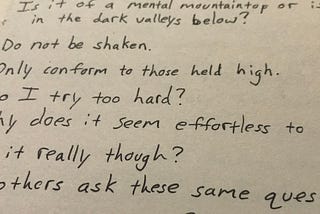 Is it of a mental mountaintop or is
in the dark valleys below?
Do not be shaken.
Only conform to those held high.
I try too hard?
does it seem effortless to
it really though?
others ask these same ques